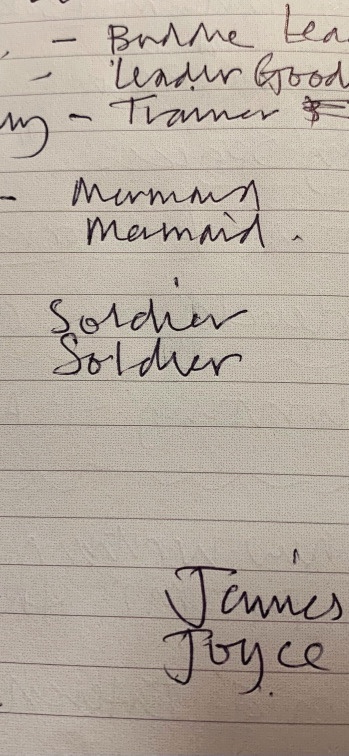 - Buddhe Lea
- Leader Good
- Trainer
- Mermaid
Mermaid .
Soldier
Soldier
James
Joyce